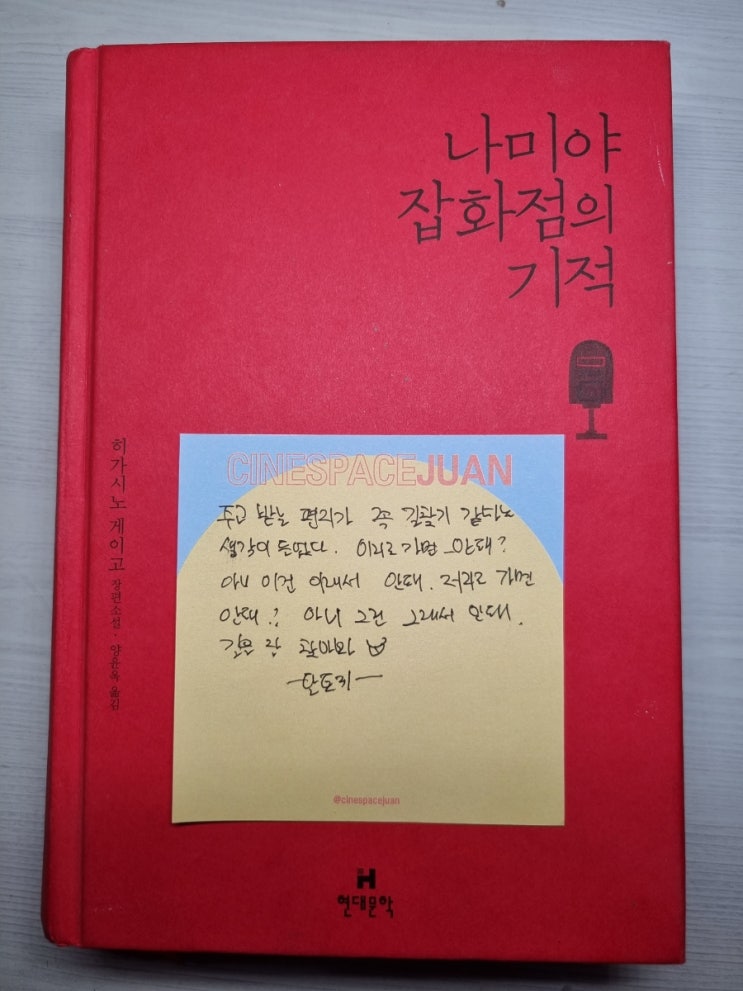 나미야
잡화점의
기적
히가시노 게이고 장편소설 · 양윤옥 옮김
CINESPACEJUAN
주고 받는 편지가 꼭 길찾기 같다는
생각이 이리로 가면 안돼?
아니 이건 이래서 안돼. 저리로 가면
안돼? 아니 그건 그래서 안돼.
@cinespacejuan
현대문학